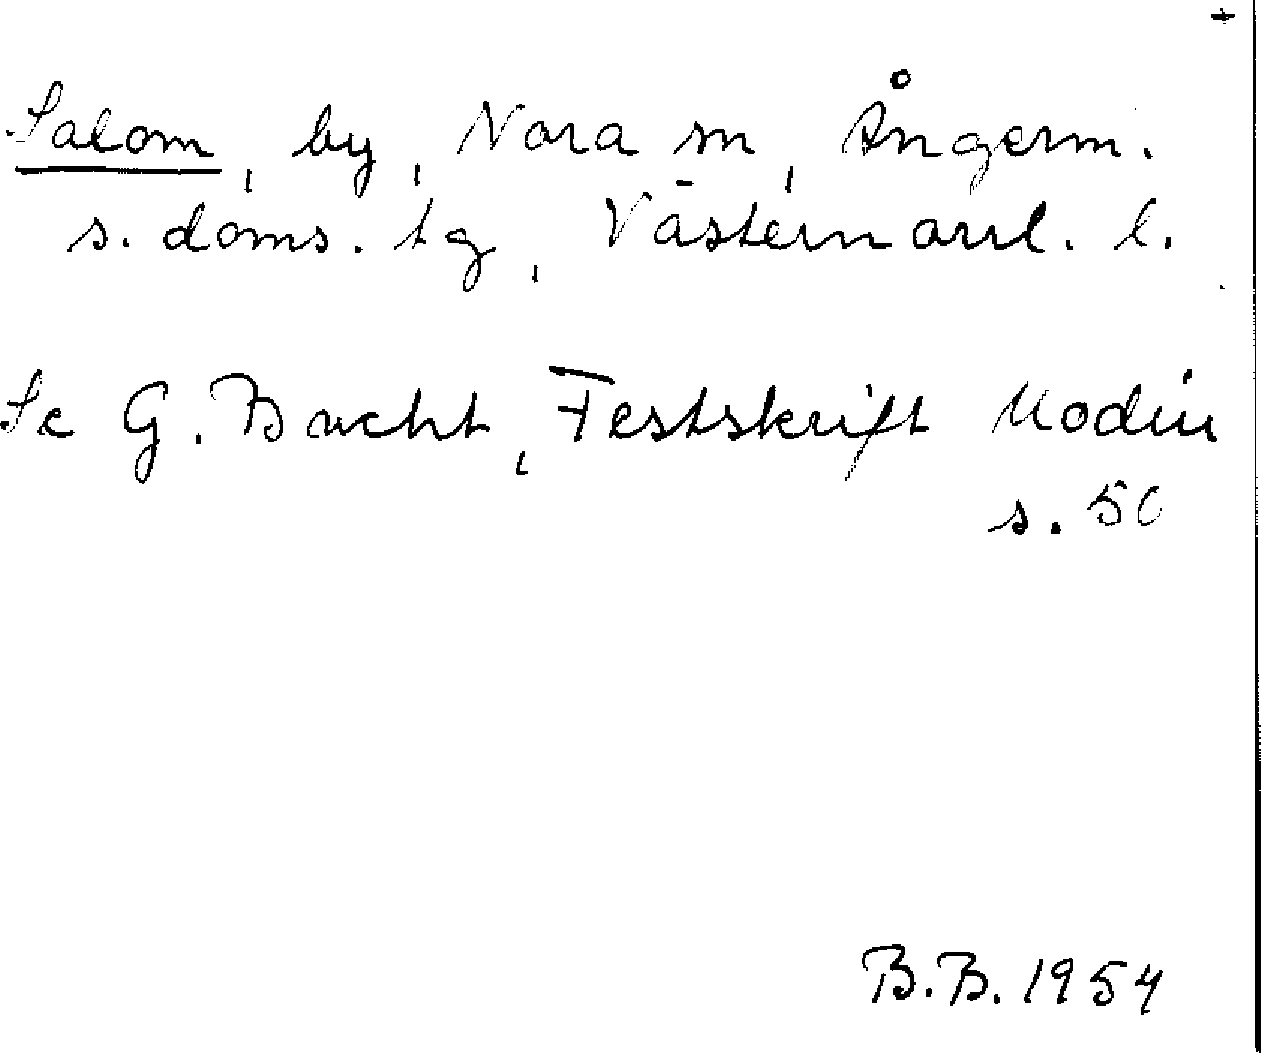 Salom, by, Nora sn, Ångerm.
s. doms. tg, Västernorrl. l.
Se G. Bucht, Festskrift Modin
s. 50
B.B. 1954